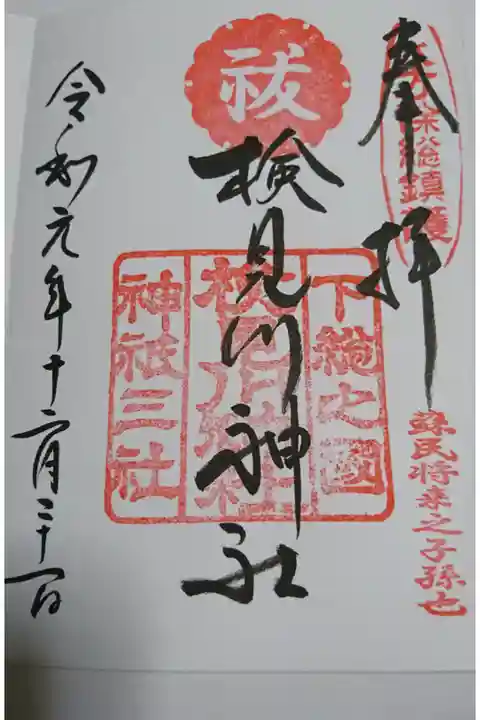 奉拝
総鎮護
蘇民将来之子孫也
祓
検見川神社
下総之國
検見川神社
神祇三社
令和元年十二月三十一日